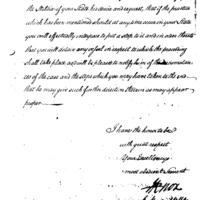 the Station of your State his desire and request, that if the practice
which has been mentioned should at any time occur in your State
you will effectually interpose to put a stop to it and in case
that you will obtain any in respect to which the preceding
shall take place, you will be pleased to notify him of the circumstances
of the case and the steps which you may have taken to the end
that he may give such further direction therein as may appear
proper
I have the honor to be
with great respect
Your Excellency's
most obedient Servant
H Knox